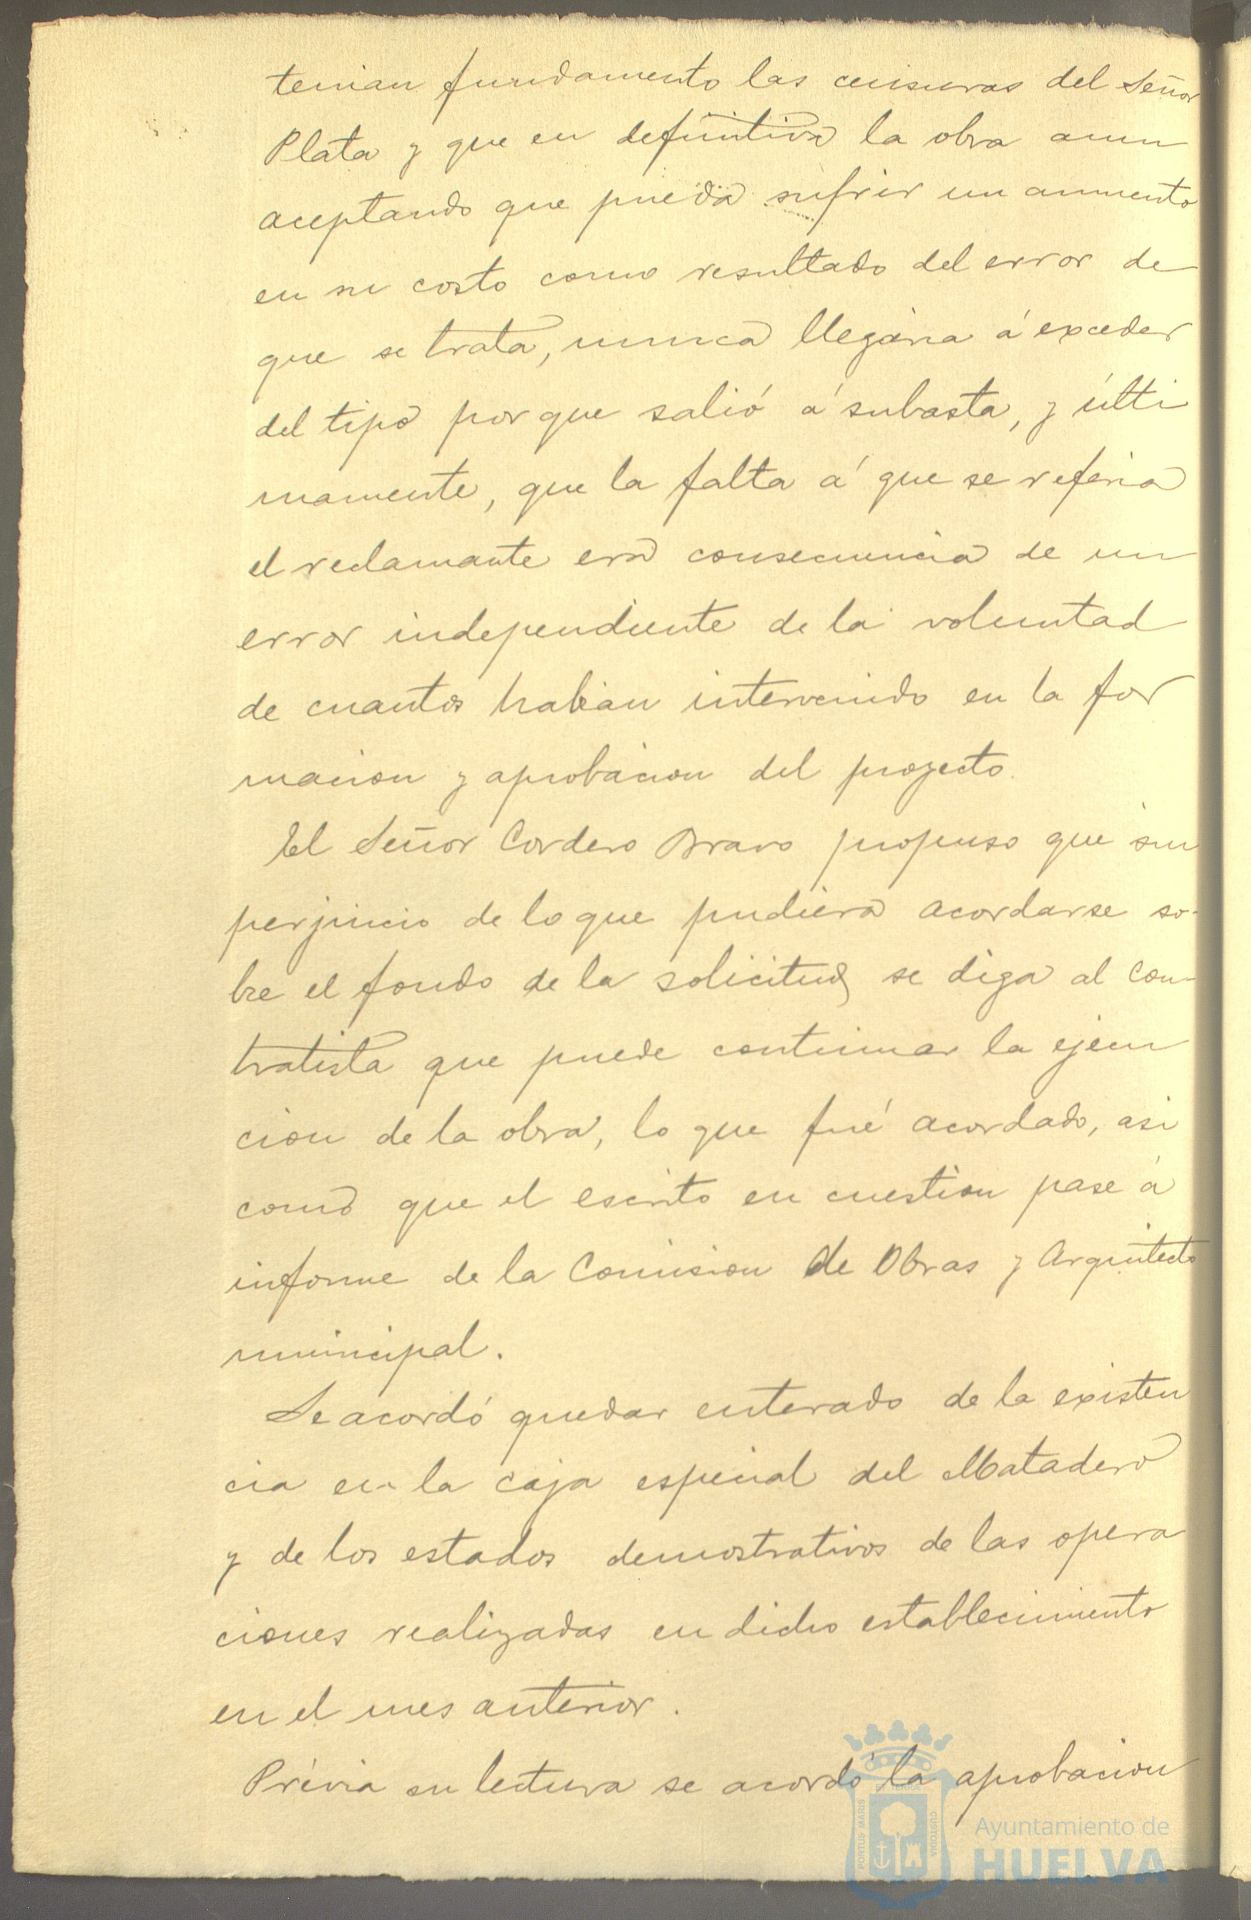 tenian fundamento las censuras del Señor
Plata y que en definitiva la obra aun
aceptando que pueda sufrir un aumento
en su costo como resultado del error de
que se trata, nunca llegaria á exceder
del tipo porque salió á subasta, y últi
mamente, que la falta á que se referia
el reclamante era consecuencia de un
error independiente de la voluntad
de cuantos habian intervenido en la for
macion y aprobacion del proyecto.
El Señor Cordero Bravo propuso que sin
perjuicio de lo que pudiera acordarse so-
bre el fondo de la solicitud se diga al con-
tratista que puede continuar la ejecu
cion de la obra, lo que fué acordado, asi
como que el escrito en cuestion pase á
informe de la Comision de Obras y Arquitecto
municipal.
Se acordó quedar enterado de la existen
cia en la caja especial del Matadero
y de los estados demostrativos de las opera
ciones realizadas en dicho establecimiento
en el mes anterior.
Prévia su lectura se acordó la aprobacion
PORTUS MARIS
CUSTODIA
Ayuntamiento de
HUELVA